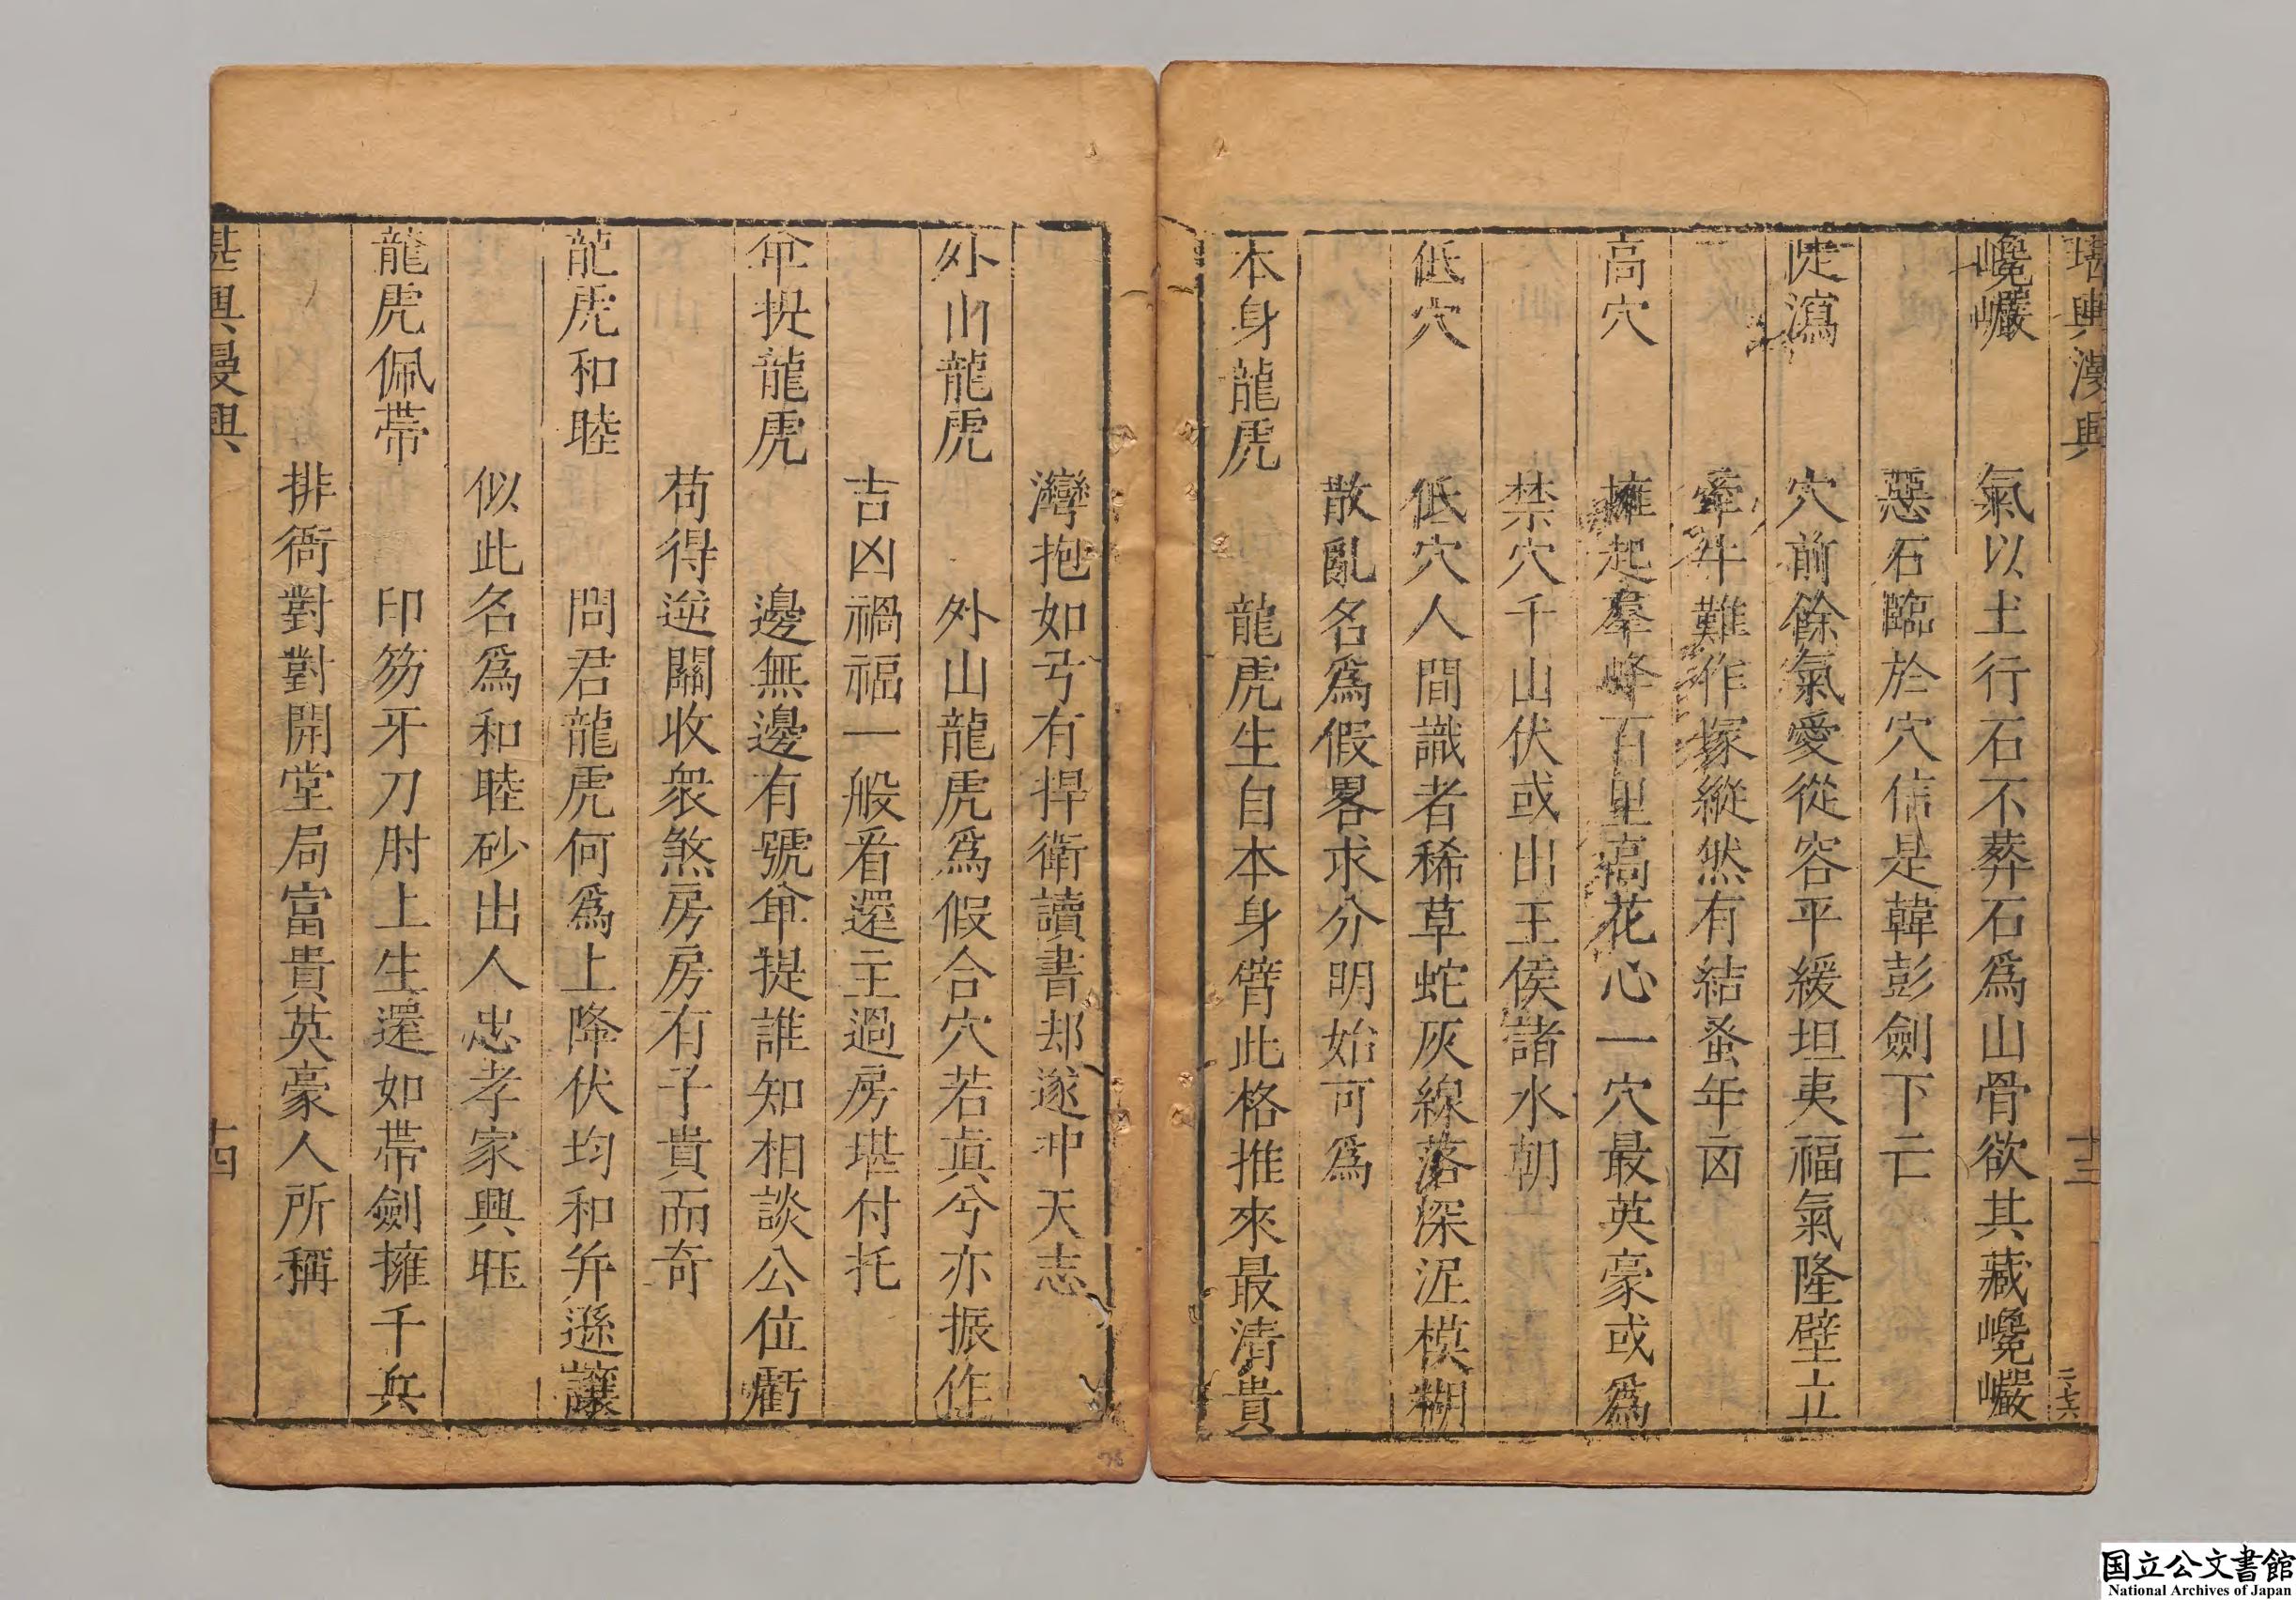 堪輿漫興
十三
二七六
巉巖
氣以土行石不葬石爲山骨欲其藏巉巖
惡石臨於穴信是韓彭劍下亡
陡瀉
穴前餘氣愛從容平緩坦夷福氣隆壁立
牽牛難作塚縱然有結蚤年凶
高穴
擁起羣峰百里高花心一穴最英豪或爲
禁穴千山伏或出王侯諸水朝
低穴
低穴人間識者稀草蛇灰線落深泥模糊
散亂名爲假畧求分明始可爲
本身龍虎
龍虎生自本身臂此格推來最清貴
灣抱如弓有捍衛讀書却遂冲天志
外山龍虎
外山龍虎爲假合穴若眞兮亦振作
吉凶禍福一般看還主過房堪付托
龍虎
邊無邊有號單提誰知相談公位虧
苟得逆關收衆煞房房有子貴而奇
龍虎和睦
問君龍虎何爲上降伏均和并遜讓
似此名爲和睦砂出人忠孝家興旺
龍虎佩帶
印笏牙刀肘上生還如帶劍擁千兵
排衙對對開堂局富貴英豪人所稱
堪輿漫興
十四
国立公文書館
National Archives of Japan